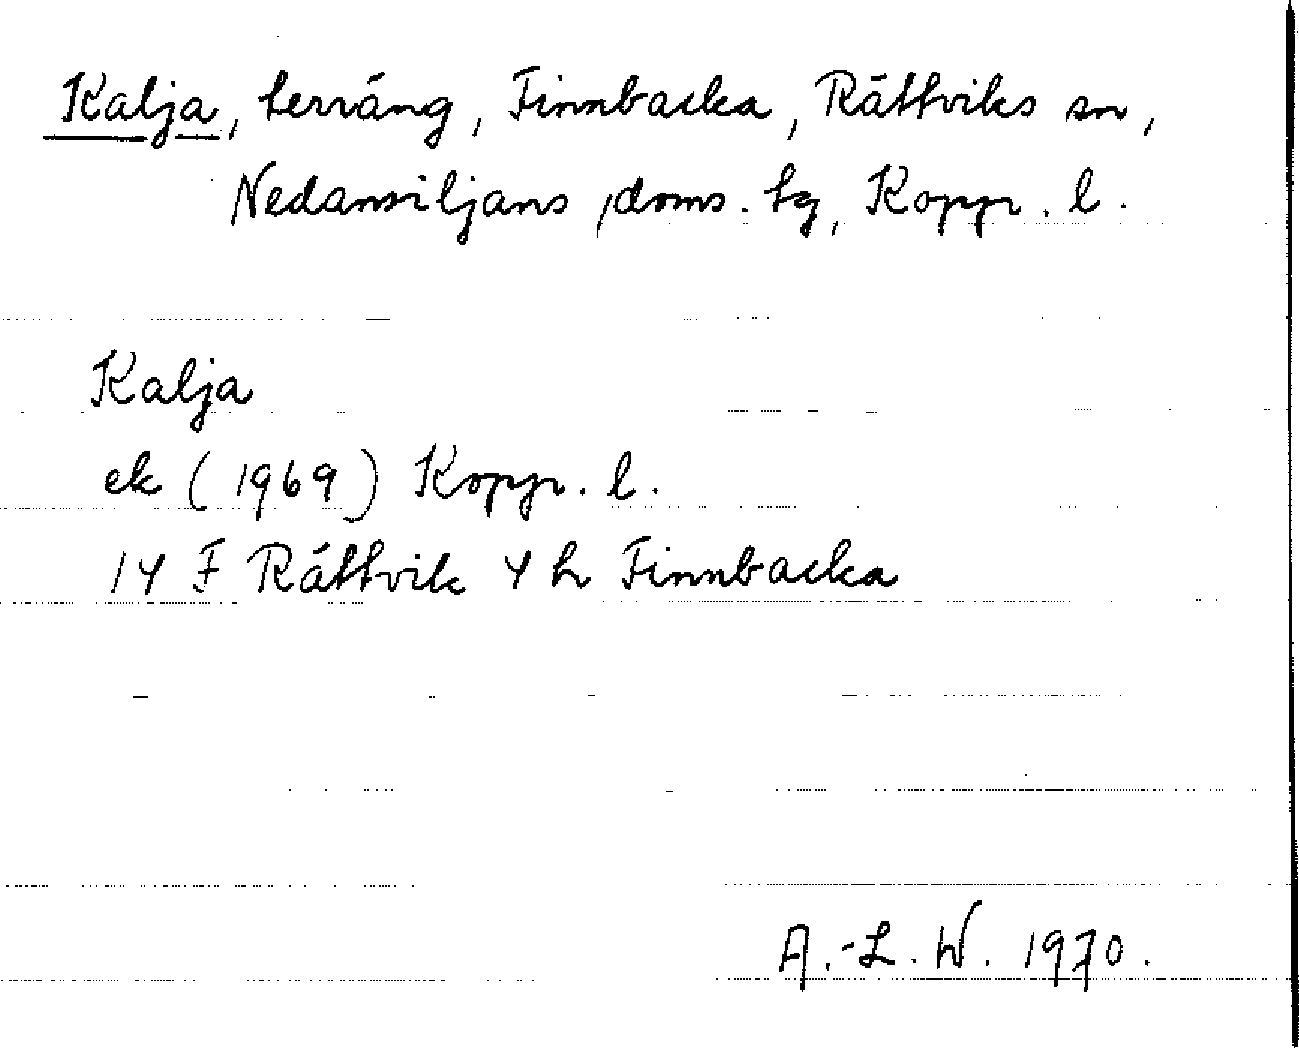 Kalja, terräng, Finnbacka, Rättviks sn,
Nedansiljans doms. hg, Kopp. l.
Kalja
ek (1969) Kopp. l.
14 F Rättvik 4 h Finnbacka
A.-L. W. 1970.